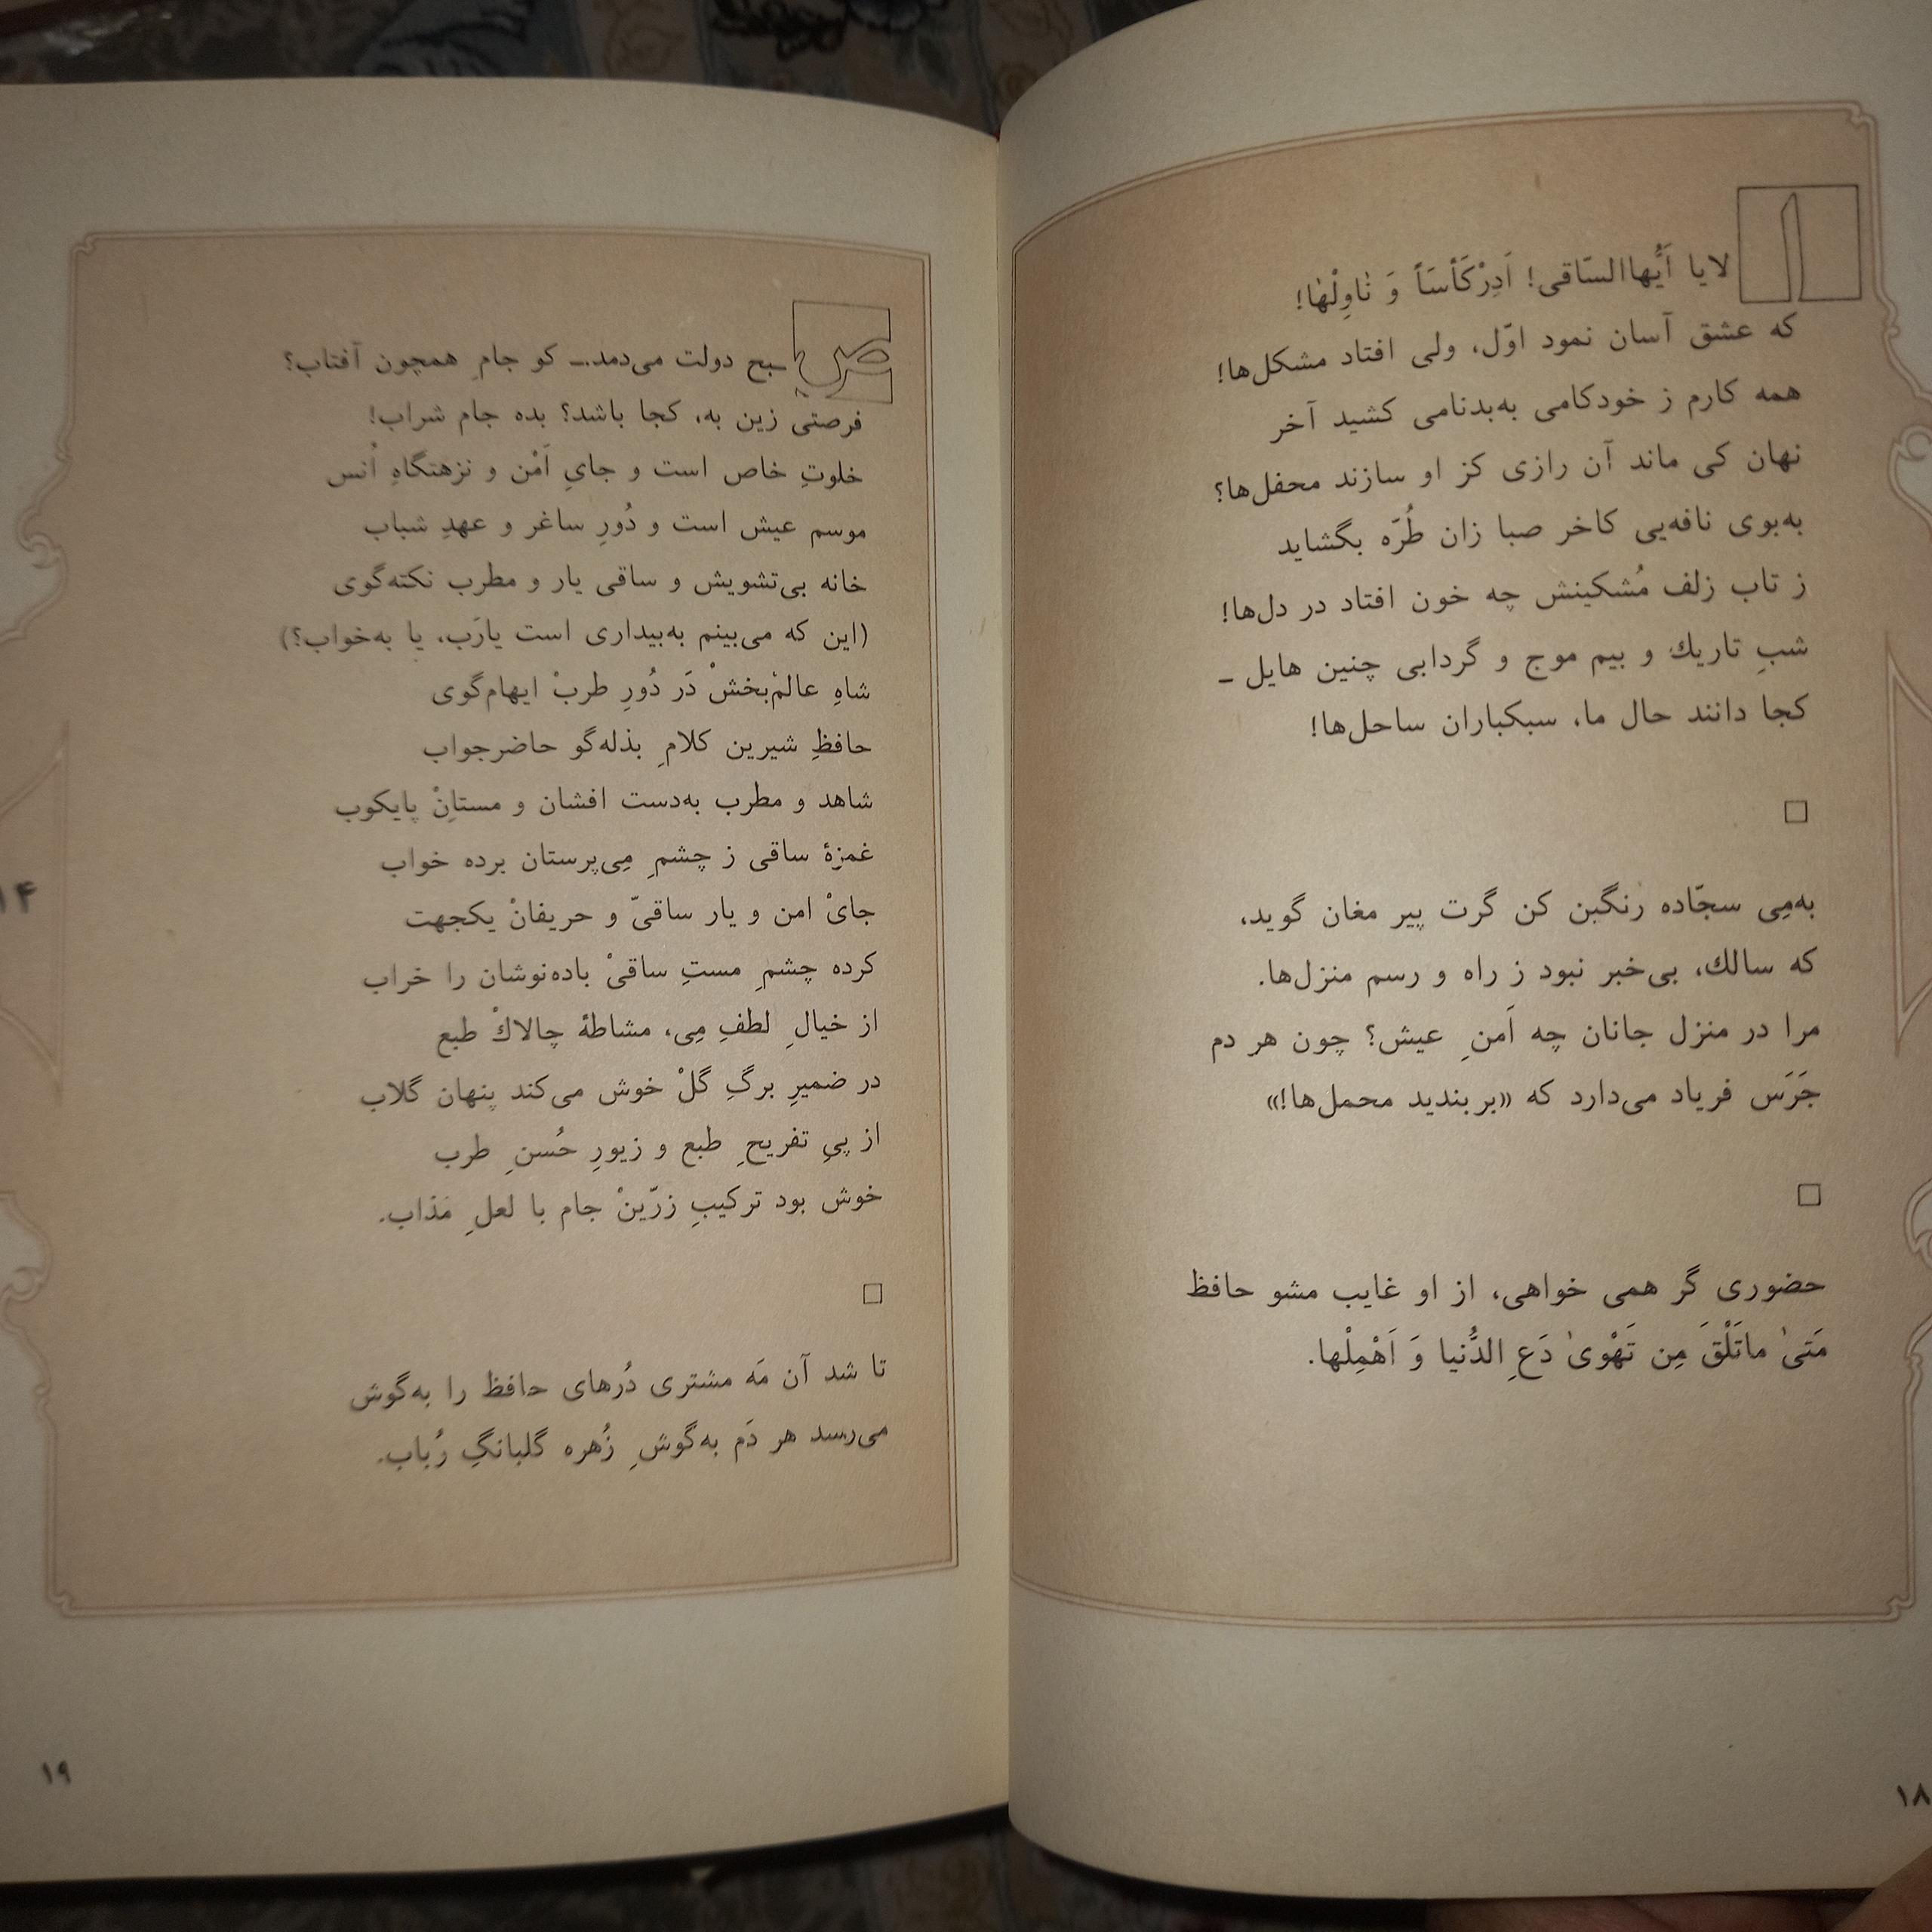 الایا اَیُّهاالسّاقی! اَدِرْکَأسَاً وَ نٰاوِلْهٰا!
که عشق آسان نمود اوّل، ولی افتاد مشکل‌ها!
همه کارم ز خودکامی به‌بدنامی کشید آخر
نهان کی ماند آن رازی کز او سازند محفل‌ها؟
به‌بوی نافه‌یی کاخر صبا زان طُرّه بگشاید
ز تاب زلف مُشکینش چه خون افتاد در دل‌ها!
شبِ تاریك و بیم موج و گردابی چنین هایل ـ
کجا دانند حال ما، سبکباران ساحل‌ها!
□
به‌مِی سجّاده رنگین کن گرت پیر مغان گوید،
که سالك، بی‌خبر نبود ز راه و رسم منزل‌ها.
مرا در منزل جانان چه اَمنِ عیش؟ چون هر دم
جَرَس فریاد می‌دارد که «بربندید محمل‌ها!»
□
حضوری گر همی خواهی، از او غایب مشو حافظ
مَتیٰ ماتَلْقَ مِن تَهْویٰ دَعِ الدُّنیا وَ اَهْمِلْها.
۱۸
صبح دولت می‌دمد.ـ کو جامِ همچون آفتاب؟
فرصتی زین به، کجا باشد؟ بده جام شراب!
خلوتِ خاص است و جایِ اَمْن و نزهتگاهِ اُنس
موسم عیش است و دُورِ ساغر و عهدِ شباب
خانه بی‌تشویش و ساقی یار و مطرب نکته‌گوی
(این که می‌بینم به‌بیداری است یارَب، یا به‌خواب؟)
شاهِ عالمْ‌بخشْ دَر دُورِ طربْ ایهام‌گوی
حافظِ شیرین کلامِ بذله‌گو حاضرجواب
شاهد و مطرب به‌دست افشان و مستانْ پایکوب
غمزهٔ ساقی ز چشمِ مِی‌پرستان برده خواب
جایْ امن و یار ساقیّ و حریفانْ یکجهت
کرده چشمِ مستِ ساقیْ باده‌نوشان را خراب
از خیالِ لطفِ مِی، مشاطهٔ چالاكْ طبع
در ضمیرِ برگِ گلْ خوش می‌کند پنهان گلاب
از پیِ تفریحِ طبع و زیورِ حُسنِ طرب
خوش بود ترکیبِ زرّینْ جام با لعلِ مَذاب.
□
تا شد آن مَه مشتری دُرهای حافظ را به‌گوش
می‌رسد هر دَم به‌گوشِ زُهره گلبانگِ رُباب.
۱۴
۱۹